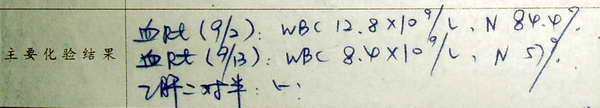 主要化验结果
血Rt (9/2): WBC 12.8×10⁹/L, N 84.4%.
血Rt (9/13): WBC 8.4×10⁹/L, N 57%.
乙肝二对半: (-)